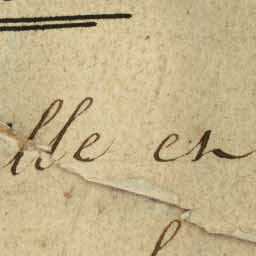 lle en